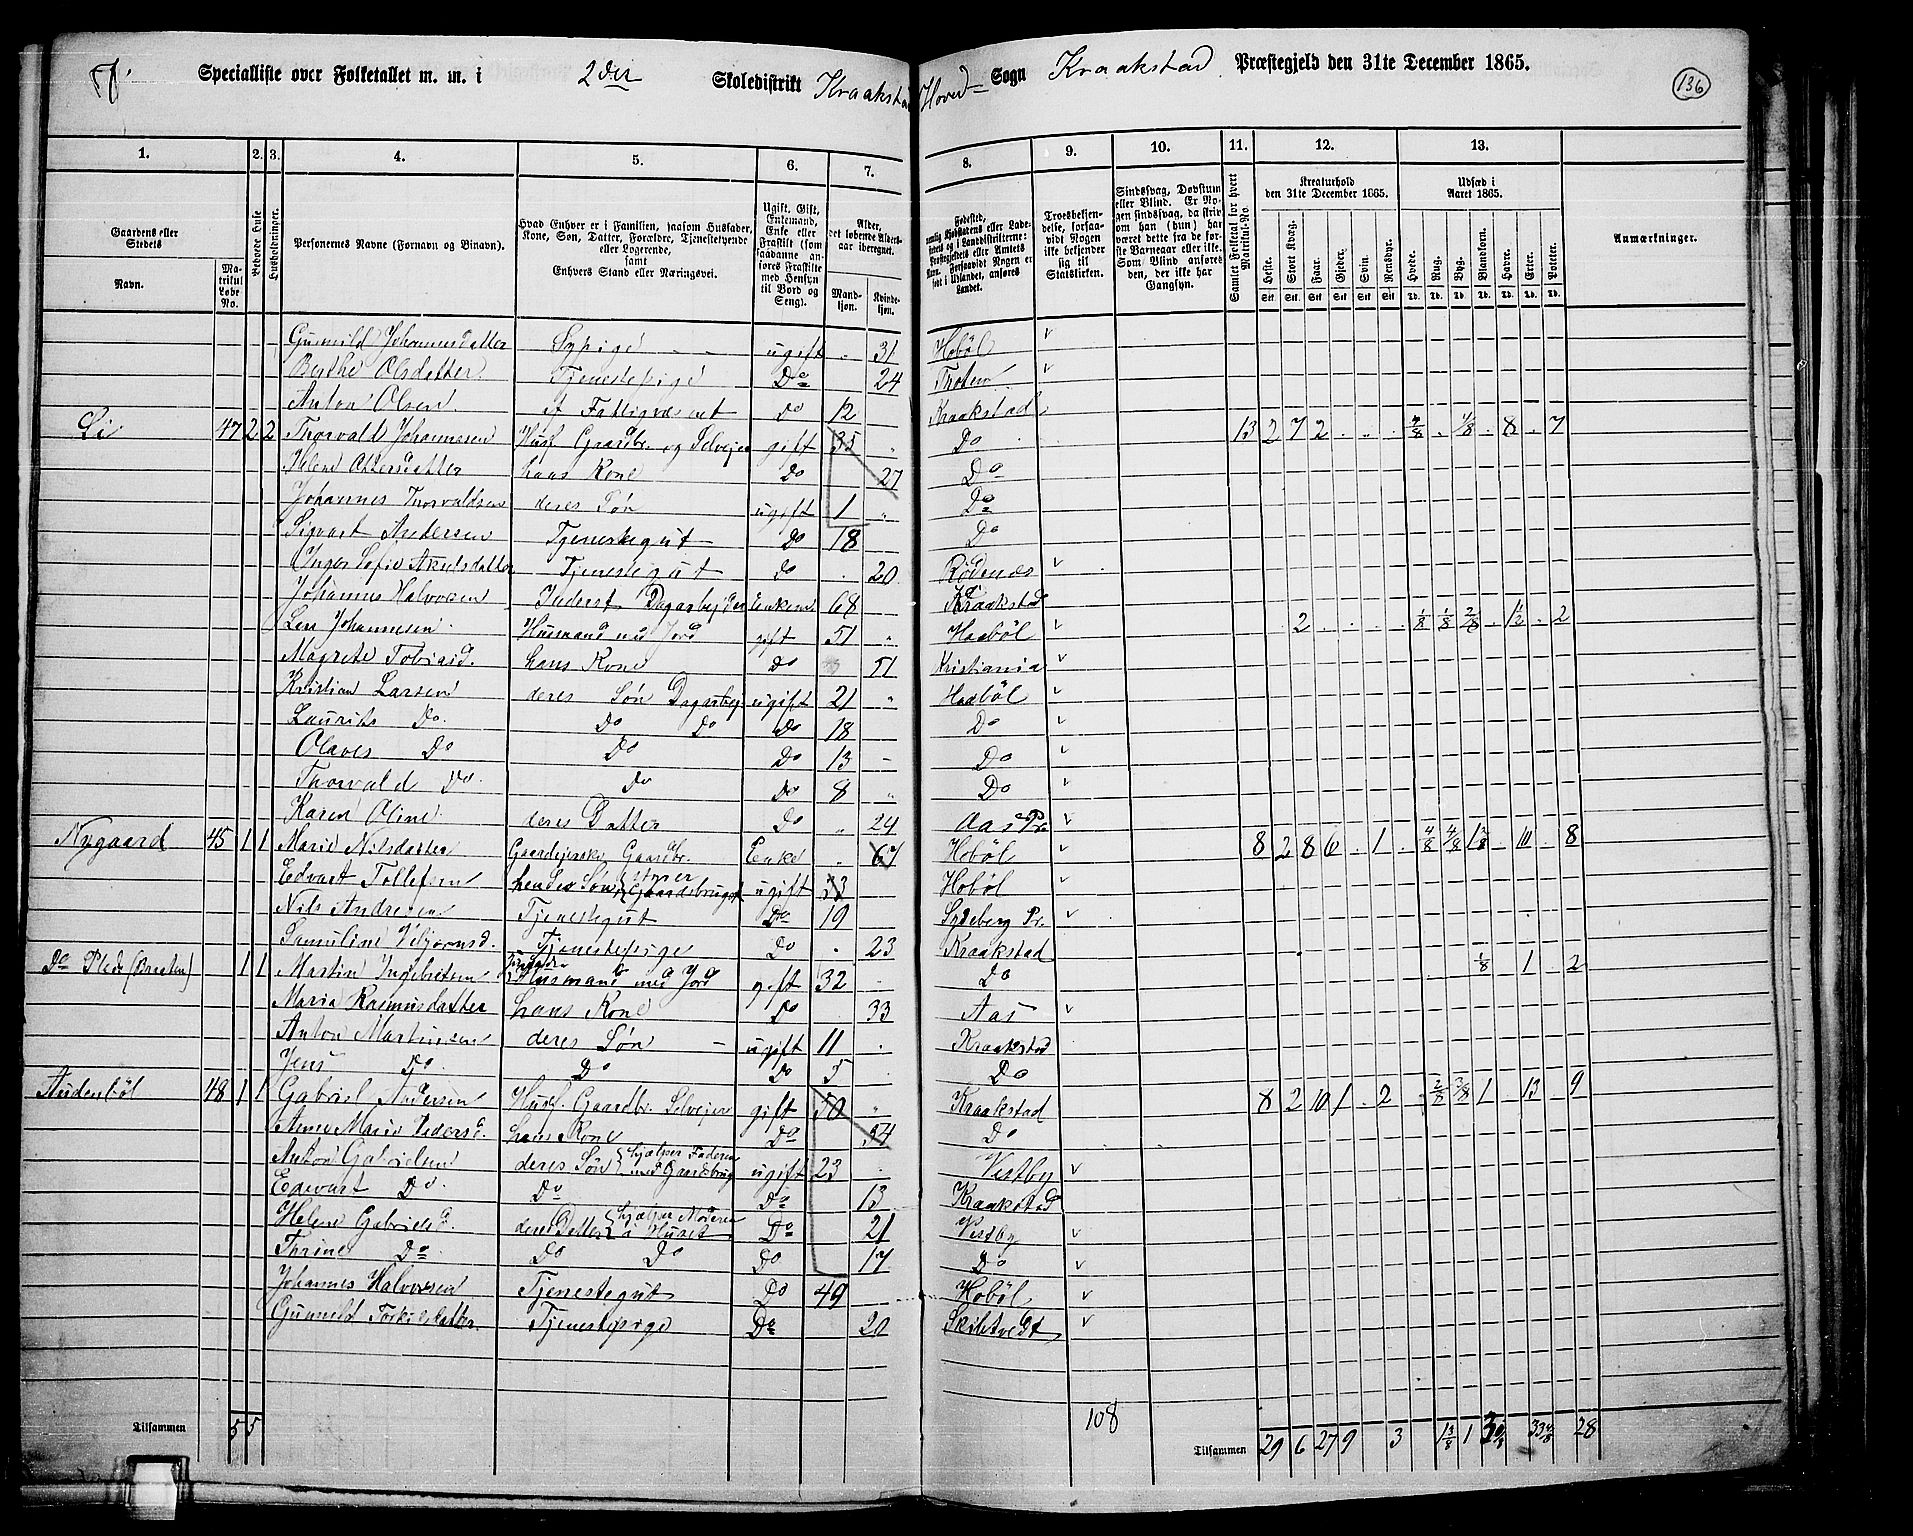 Specialliste over Folketallet m. m. i 2det Skoledistrikt Kraakstad Hoved Sogn Kraakstad Præstegjeld den 31te December 1865.
136
1. 2. 3. 4. 5. 6. 7. 8. 9. 10. 11. 12. 13.
Gaardens eller Stedets
Navn.
Matrikul Løbe No.
Beboede Huse
Husholdninger.
Personernes Navne (Fornavn og Binavn).
Hvad Enhver er i Familien, saasom Husfader, Kone, Søn, Datter, Forældre, Tjenestetyende eller Logerende, samt Enhvers Stand eller Næringsvei.
Ugift, Gift, Enkemand, Enke eller Fraskilt (som saadanne anføres Fraskilte med Hensyn til Bord og Seng).
Alder, det løbende Aldersaar iberegnet.
Mandkjøn.
Kvindekjøn.
Troesbekjendelse, forsaavidt Nogen ikke bekjender sig til Statskirken.
Sindssvag, Døvstum eller Blind. Er Nogen sindssvag, da skrives
Samlet Folketal for hvert Matrikul-No.
Kreaturhold den 31te December 1865.
Heste. Stort Kvæg. Faar. Gjeder. Svin. Rensdyr.
Udsæd i Aaret 1865.
Hvede. Rug. Byg. Blandkorn. Havre. Erter. Poteter.
Anmærkninger.
Gunnild Johannesdatter Sypige ugift 31 Hobøl
Berthe Olsdatter Tjenestepige Do 24 Thoten
Anton Olsen af Fattigvæsenet Do 12 Kraakstad
Li 47 2 2 Thorvald Johannesen Husf Gaardbr og Selveier gift 35 Do 13 2 7 2 8 7
Helene Do 27 Do
Johannes Thorvaldsen deres Søn ugift 1 Do
Sigvart Andersen Tjenestegut Do 18 Do
Inger Sofie Akselsdatter Tjenestegut Do 20 Rødenæs
Johannes Halvorsen Inderst Dagarbejder Enkem 68 Kraakstad
Johannesen Husmand med Jord gift 51 Haabøl 2 1/8 1/8 2/8 1 1/2 2
Magrete Tobiasd. hans Kone Do 51 Kristiania
Kristian Larsen deres Søn Dagarbej ugift 21 Haabøl
Laurits Do Do Do Do 18 Do
Olaves Do Do Do 13 Do
Thorvald Do Do Do 8 Do
Karen Oline deres Datter Do 24 Aas Pr.
Nygaard 45 1 1 Marie Nilsdatter Gaardejerske Gaardbr. Enke 67 Hobøl 8 2 8 6 1 4/8 4/8 10 8
Edvart Tollefsen hendes Søn Gaardsbruget ugift 33 Hobøl
Nils Andresen Tjenestegut Do 19 Spdeberg Pr.
Samuline Tjenestepige Do 23 Kraakstad
Do Plads (Braaten) 1 1 Martin Ingebretsen Husmand med Jord gift 32 Do 1/8 1 2
Maria Rasmusdatter hans Kone Do 33 Aas
Anton Martinsen deres Søn ugift 11 Kraakstad
Jens Do Do Do 5 Do
Audenbøl 48 1 1 Gabriel Andersen Husf. Gaardbr. Selvejer gift 50 Kraakstad 8 2 10 1 2 2/8 3/8 1 13 9
Anne Marie Pedersd. hans Kone Do 54 Do
Anton Gabrielsen deres Søn hjælper Faderen med Gaardsbrug ugift 23 Vestby
Edevart Do Do Do 13 Kraakstad
Helene Gabrielsd. deres Datter hjælper Moderen i Huset Do 21 Vestby
Thrine Do Do Do Do 17 Do
Johannes Halvorsen Tjenestegut Do 49 Hobøl
Gunneld Torkildsdatter Tjenestepige Do 20 Skibtvedt
Tilsammen 5 5
108
Tilsammen 29 6 27 9 3 1 3/8 1 28